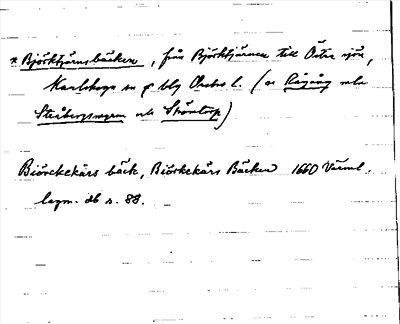 * Björktjärnsbäcken, från Björktjärnen till Östersjön,
Karlskoga sn o. blg Örebro l. (se Rågång och
Stråbergsmyren och Ströntorp)
Biörckekärs bäck, Biörkekärs Bäcken 1660 Värml.
lagm. db s. 88.